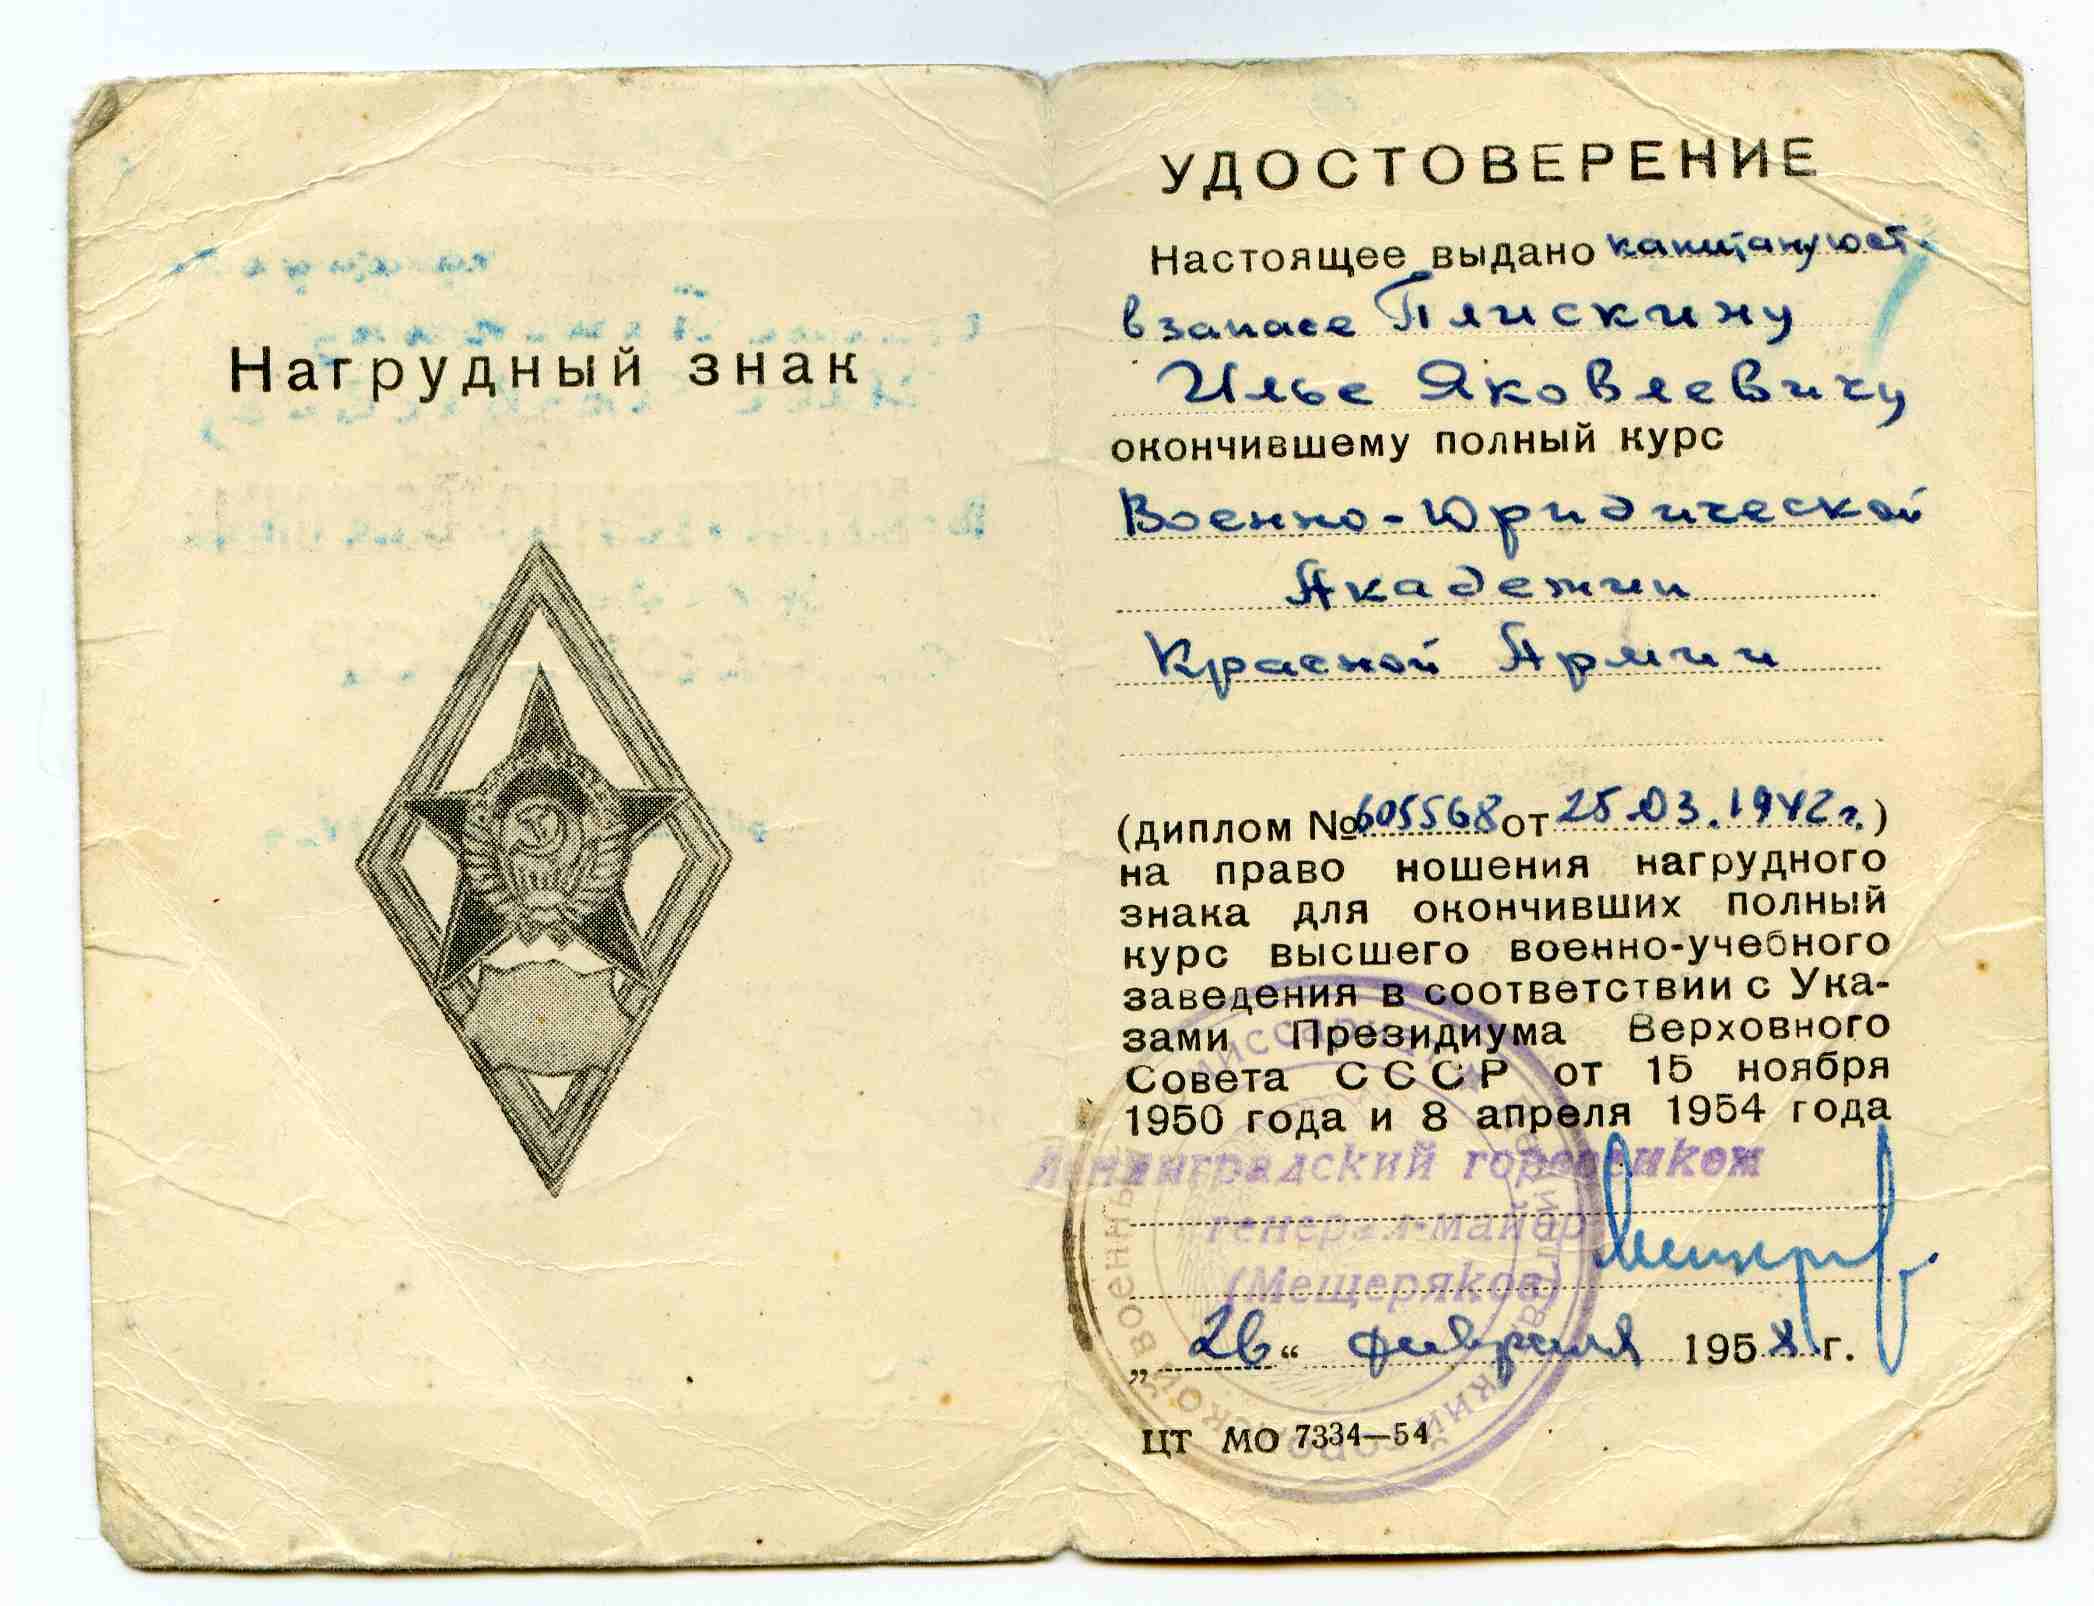 Нагрудный знак
УДОСТОВЕРЕНИЕ
Настоящее выдано капитану юст.
в запасе Плискину
Илье Яковлевичу
окончившему полный курс
Военно-Юридической
Академии
Красной Армии
(диплом № 605568 от 25.03.1942 г.)
на право ношения нагрудного
знака для окончивших полный
курс высшего военно-учебного
заведения в соответствии с Ука-
зами Президиума Верховного
Совета СССР от 15 ноября
1950 года и 8 апреля 1954 года
Ленинградский горвоенком
генерал-майор
(Мещеряков)
„26“ февраля 1958 г.
ЦТ МО 7334—54